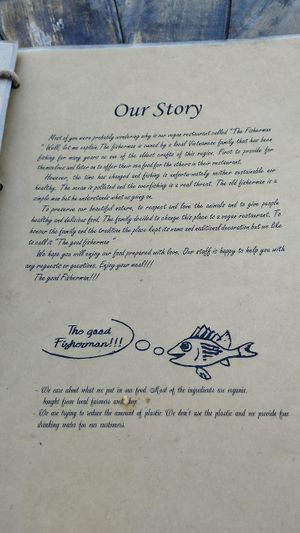 Our Story
Most of you were probably wondering why is our vegan restaurant called "The Fisherman
". Well, let me explain. The fisherman is owned by a local Vietnamese family that has been
fishing for many years as one of the oldest crafts of this region. First to provide for
themselves and later on to offer their sea food for the others in their restaurant.
However, the time has changed and fishing is unfortunately neither sustainable nor
healthy. The ocean is polluted and the overfishing is a real threat. The old fisherman is a
simple man but he understands what is going on.
To preserve our beautiful nature, to respect and love the animals and to give people
healthy and delicious food. The family decided to change this place to a vegan restaurant. To
honour the family and the tradition the place kept its name and traditional decoration but we like
to call it "The good fisherman"
We hope you will enjoy our food prepared with love. Our staff is happy to help you with
any requests or questions. Enjoy your meal!!!
The good Fisherman!!!
The good
Fisherman!!!
- We care about what we put in our food. Most of the ingredients are organic,
bought from local farmers and shop.
- We are trying to reduce the amount of plastic. We don't use the plastic and we provide free
drinking water for our customers.